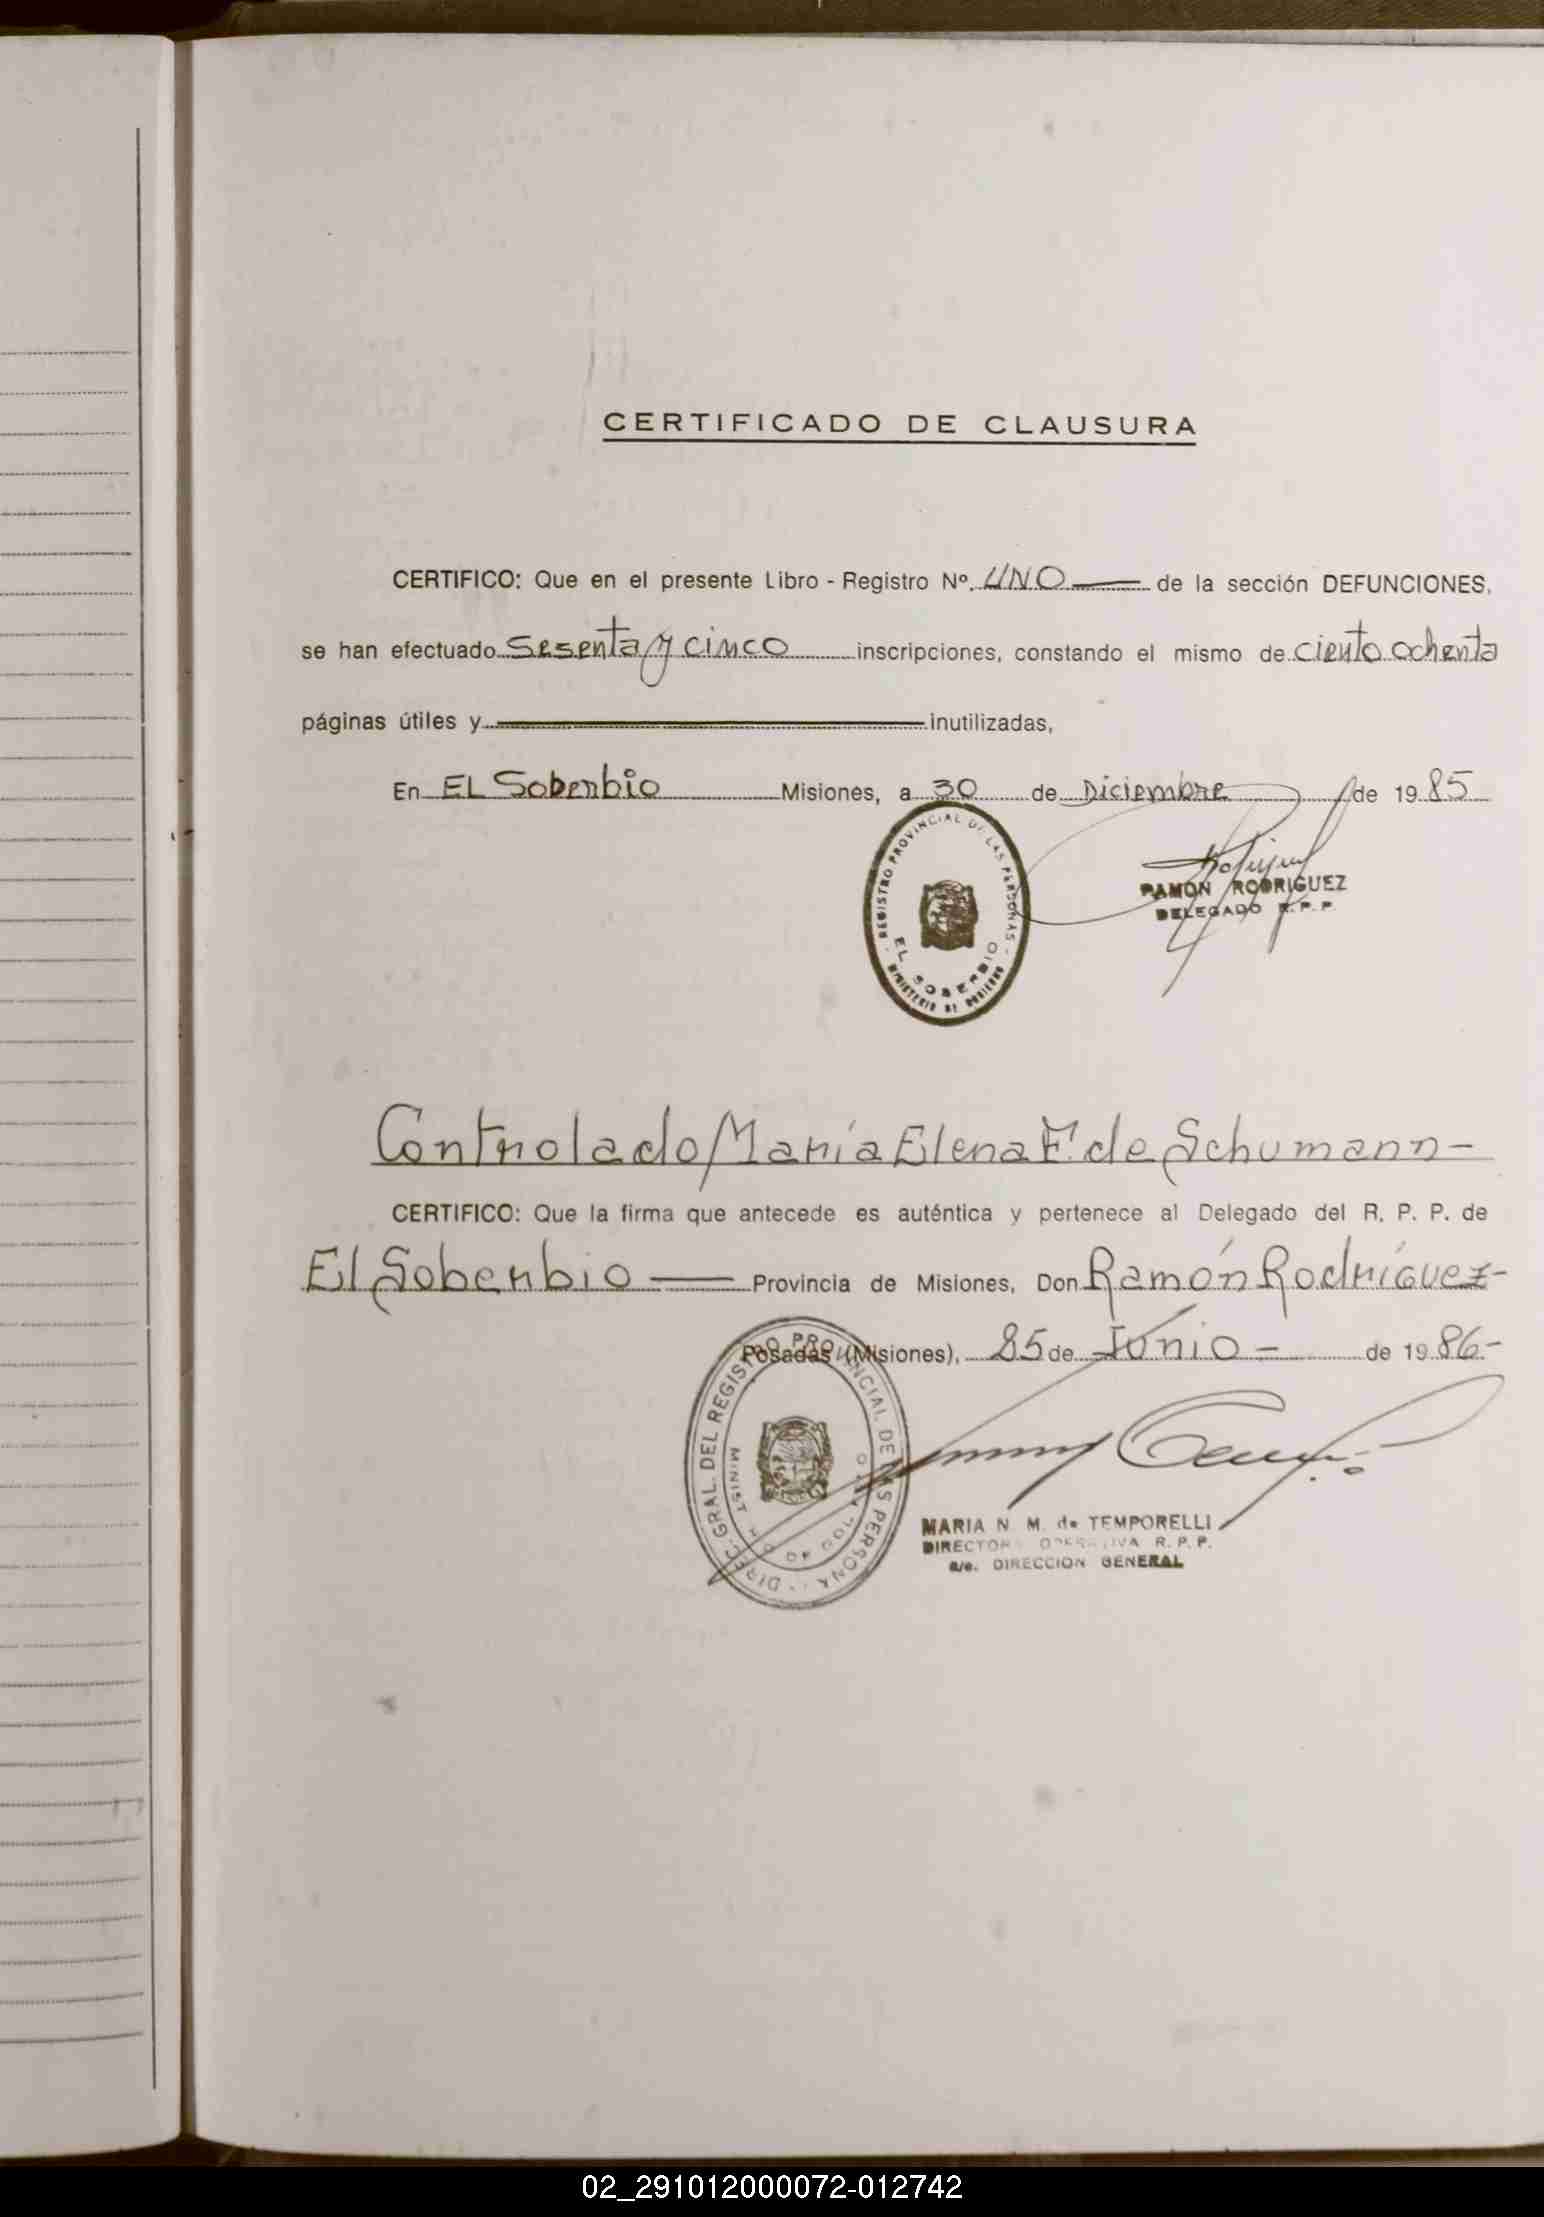 CERTIFICADO DE CLAUSURA
CERTIFICO: Que en el presente Libro - Registro Nº. UNO de la sección DEFUNCIONES,
se han efectuado Sesenta y cinco inscripciones, constando el mismo de ciento ochenta
páginas útiles y inutilizadas,
En EL Soberbio Misiones, a 30 de Diciembre de 1985
REGISTRO PROVINCIAL DE LAS PERSONAS
EL SOBERBIO
MINISTERIO DE GOBIERNO
RAMON RODRIGUEZ
DELEGADO R.P.P
Controlado María Elena F. de Schumann -
CERTIFICO: Que la firma que antecede es auténtica y pertenece al Delegado del R. P. P. de
El Soberbio Provincia de Misiones, Don Ramón Rodríguez-
Posadas (Misiones), 25 de Junio - de 1986-
DIREC. GRAL. DEL REGISTRO PROVINCIAL DE LAS PERSONA
MARIA N. M. de TEMPORELLI
DIRECTORA OPERATIVA R.P.P.
a/c. DIRECCION GENERAL
02_291012000072-012742